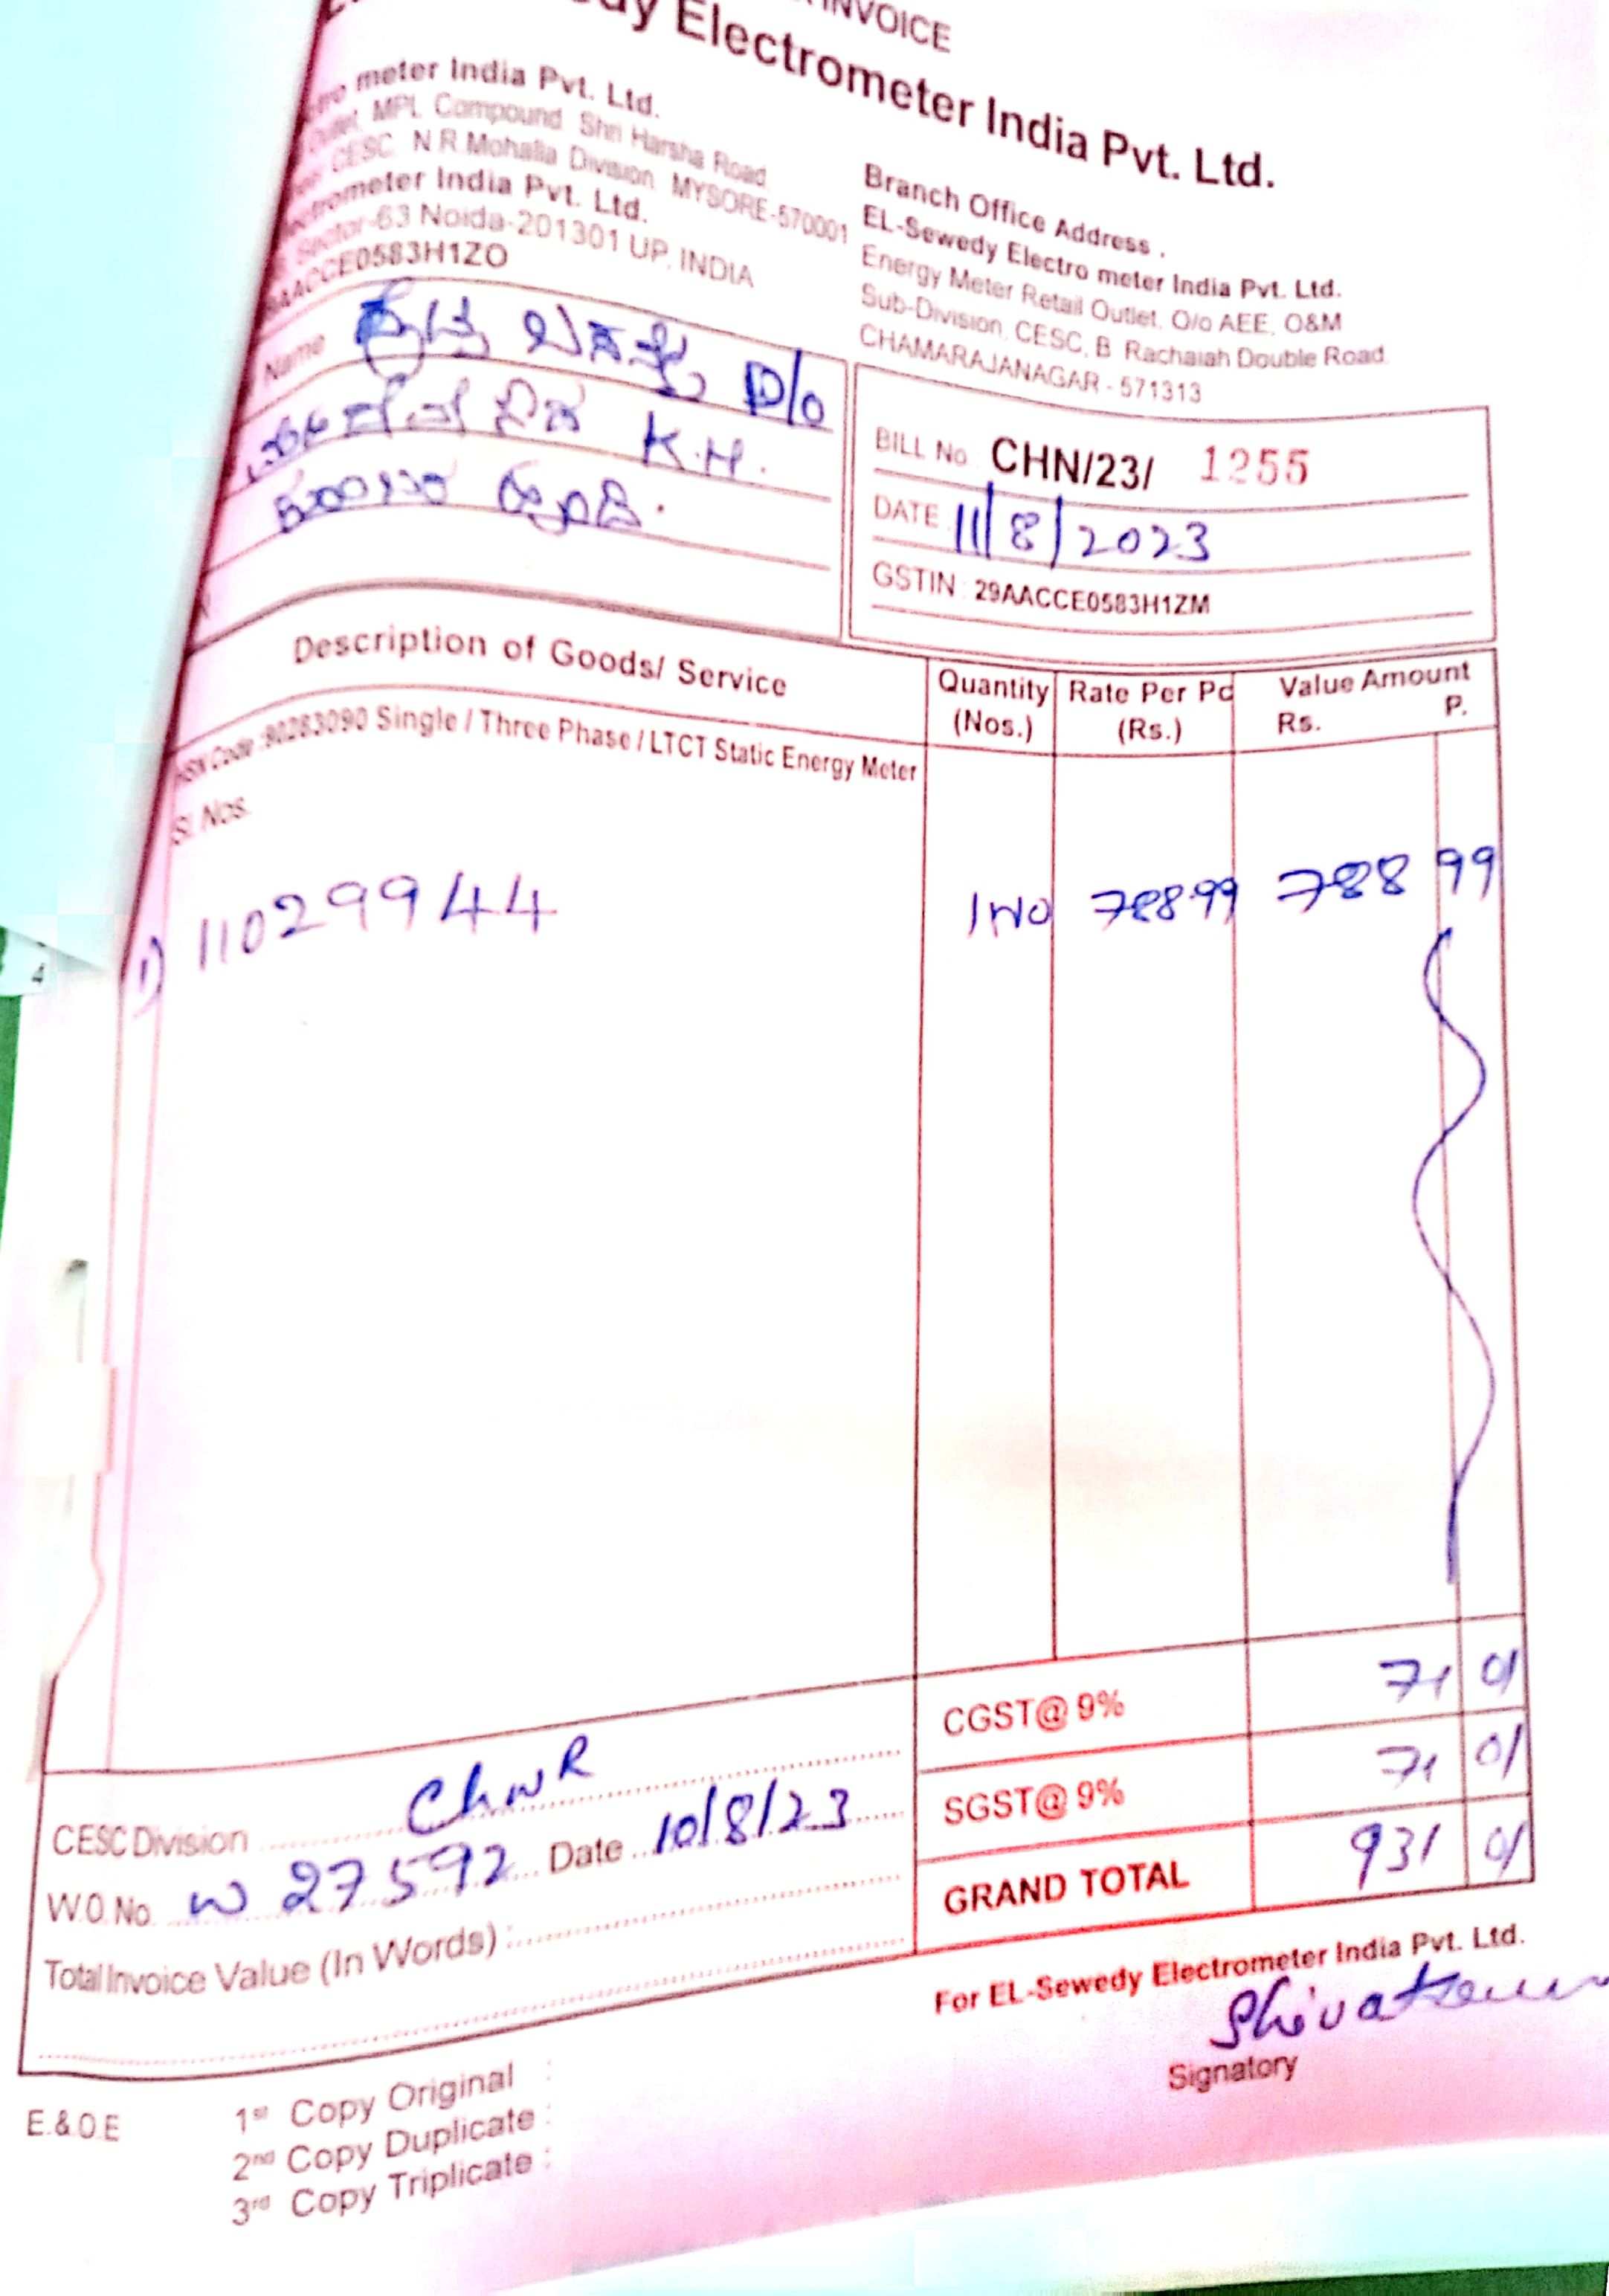 INVOICE
Electrometer India Pvt. Ltd.
meter India Pvt. Ltd.
Outlet, MPL Compound Shri Harsha Road
CESC, N.R.Mohalla Division, MYSORE-570001
India Pvt. Ltd.
Sector-63 Noida-201301 UP, INDIA
AACCE0583H1ZO
Branch Office Address .
EL-Sewedy Electro meter India Pvt. Ltd.
Energy Meter Retail Outlet, O/o AEE, O&M
Sub-Division, CESC, B Rachaiah Double Road
CHAMARAJANAGAR - 571313
Name D/o
K.H.
BILL No CHN/23/ 1255
DATE 11/8/2023
GSTIN : 29AACCE0583H1ZM
Description of Goods/ Service Quantity (Nos.) Rate Per Pc (Rs.) Value Amount Rs. P.
HSN Code :90283090 Single / Three Phase / LTCT Static Energy Meter
Sl. Nos.
1) 11029944 1 No 788.99 788 99
CGST@ 9% 71 01
SGST@ 9% 71 01
GRAND TOTAL 931 01
CESC Division ChNR
W.O. No. W 27592 Date 10/8/23
Total Invoice Value (In Words) :
For EL-Sewedy Electrometer India Pvt. Ltd.
Signatory
E.& O.E
1st Copy Original :
2nd Copy Duplicate :
3rd Copy Triplicate :